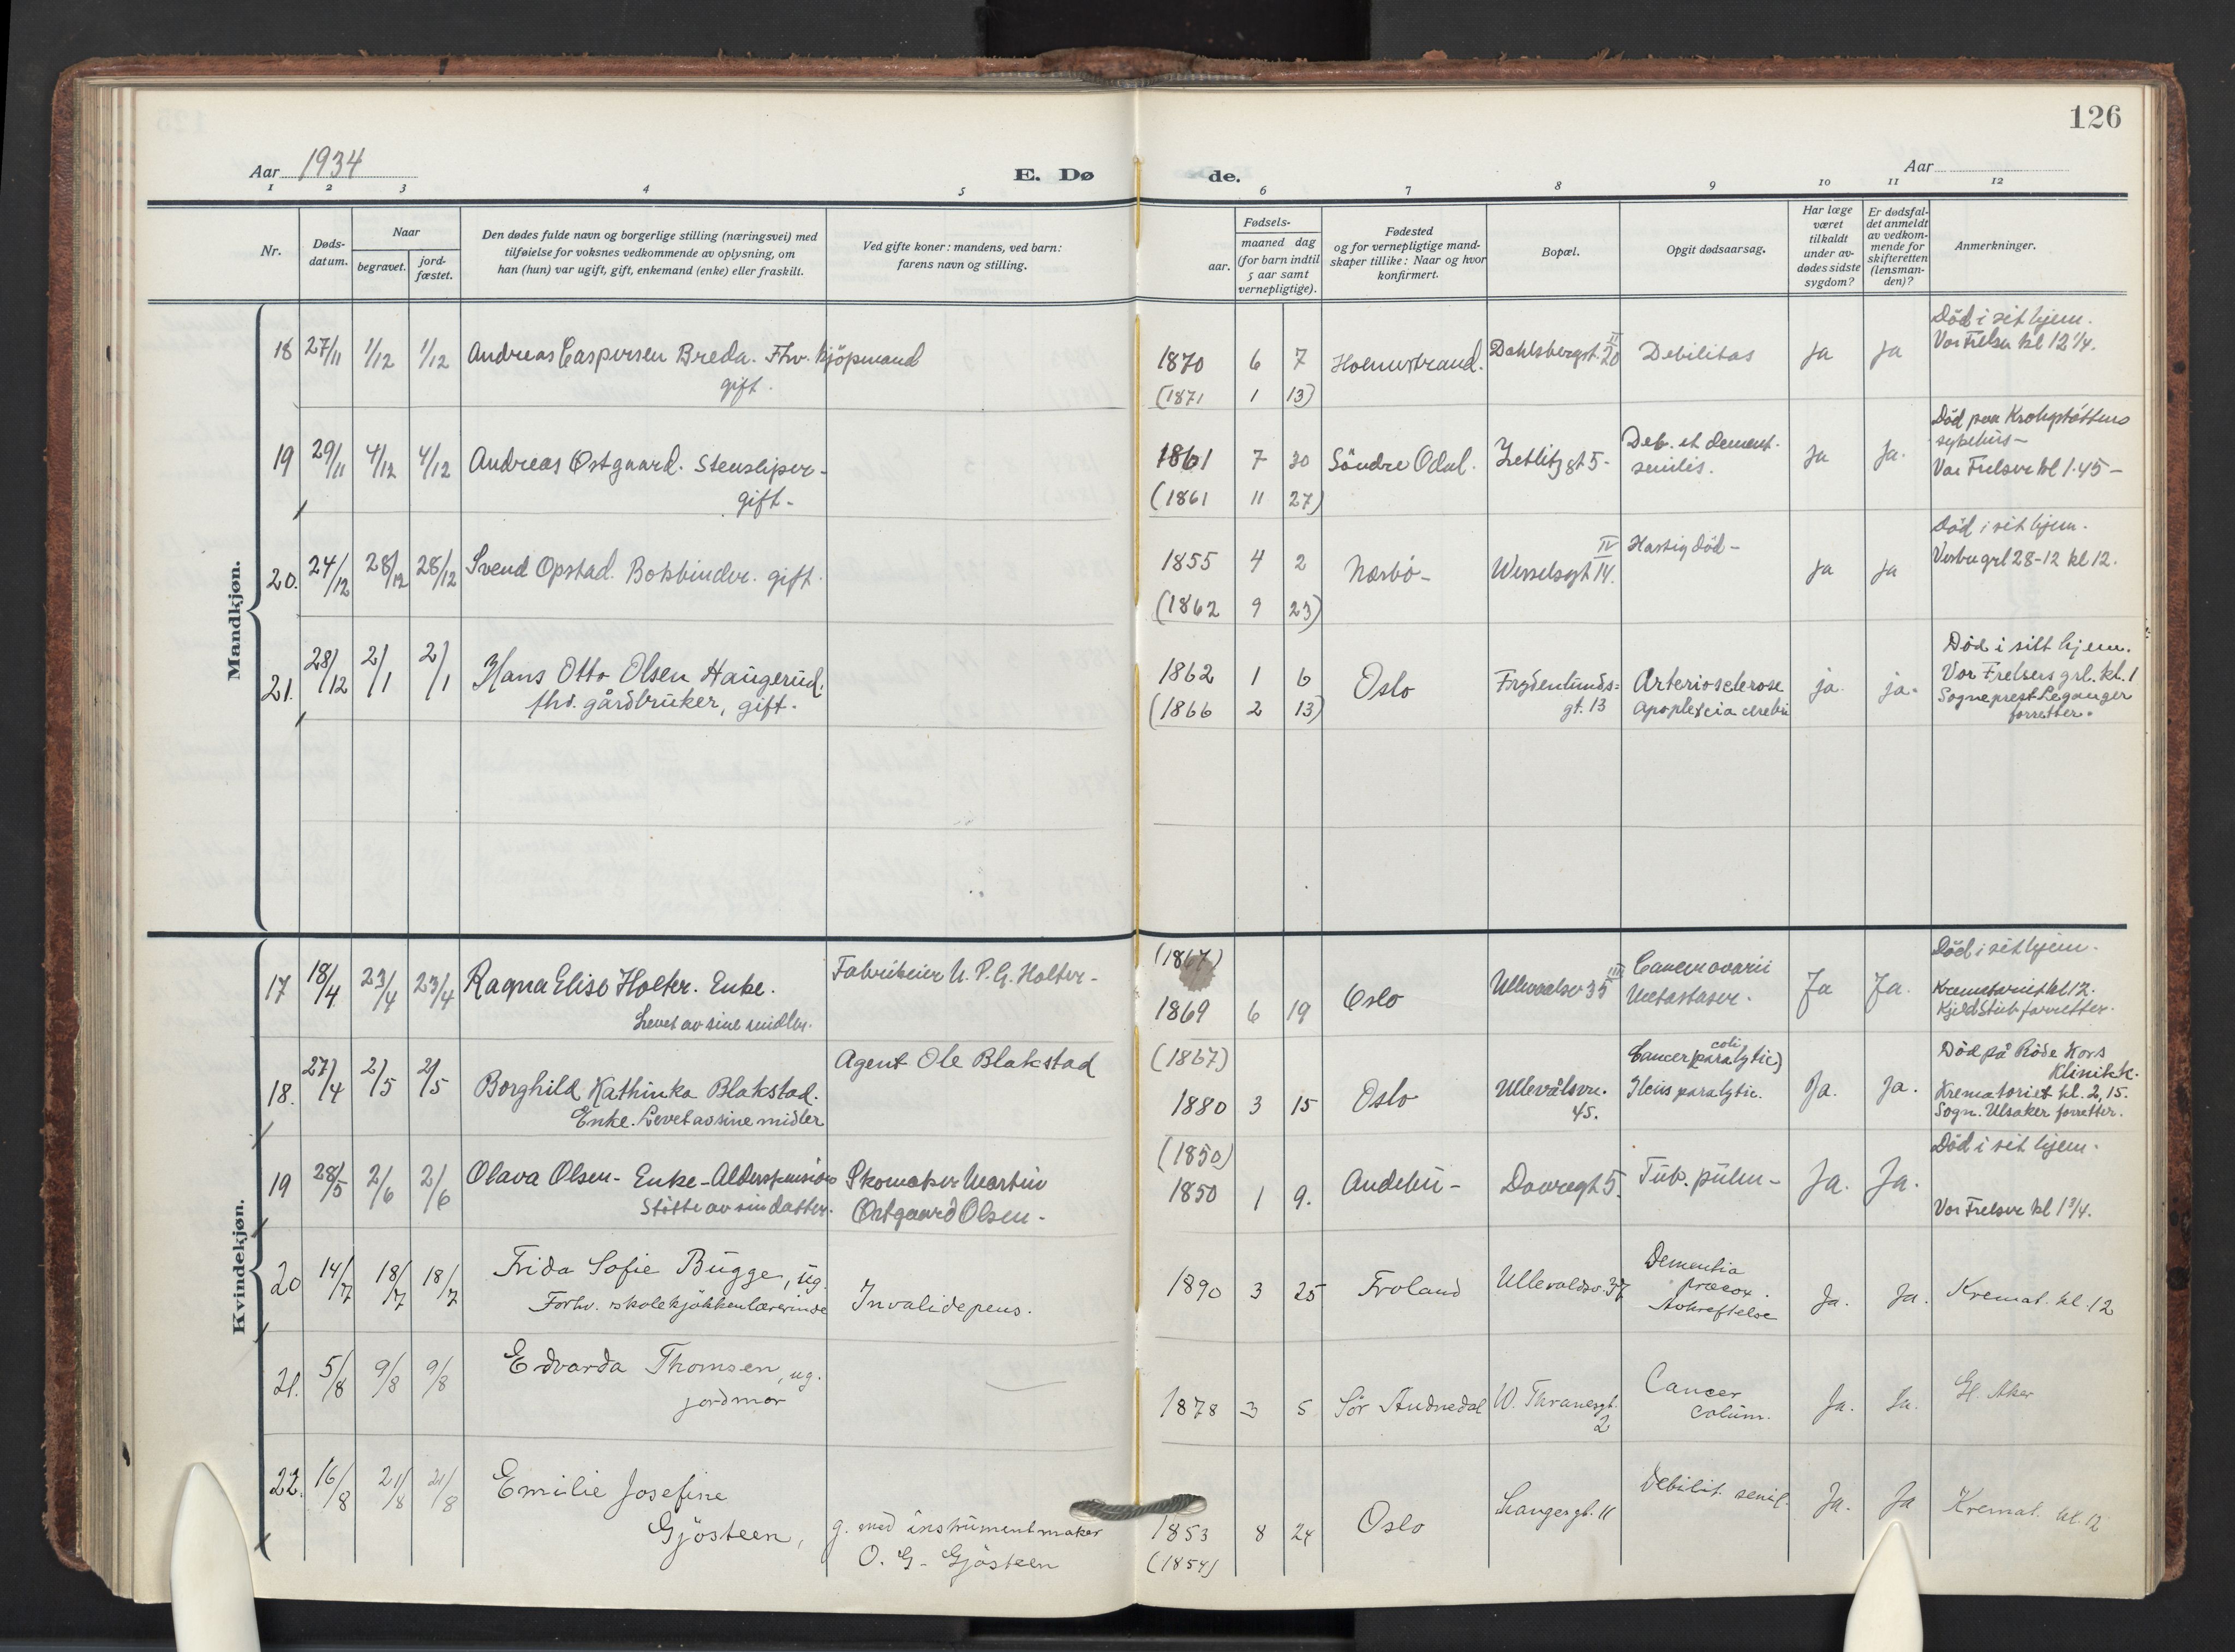 126
Aar 1934
E. Dø
de.
Aar
1 2 3 4 5 6 7 8 9 10 11 12
Nr.
Døds-
datum.
Naar
begravet.
jord-
fæstet.
Den dødes fulde navn og borgerlige stilling (næringsvei) med
tilføielse for voksnes vedkommende av oplysning, om
han (hun) var ugift, gift, enkemand (enke) eller fraskilt.
Ved gifte koner: mandens, ved barn:
farens navn og stilling.
Fødsels-
aar.
maaned dag
(for barn indtil
5 aar samt
vernepligtige).
Fødested
og for vernepligtige mand-
skaper tillike: Naar og hvor
konfirmert.
Bopæl.
Opgit dødsaarsag.
Har læge
været
tilkaldt
under av-
dødes sidste
sygdom?
Er dødsfal-
det anmeldt
av vedkom-
mende for
skifteretten
(lensman-
den)?
Anmerkninger.
Mandkjøn.
18 27/11 1/12 1/12 Andreas Caspersen Breda. Fhv. kjöpmand
gift.
1870 6 7 Holmestrand. Dahlsbergst. 20 II Debilitas ja ja
(1871 1 13)
Död i sit hjem.
Vor Frelser kl 12 1/4.
19 29/11 4/12 4/12 Andreas Østgaard. Stensliper-
gift-
1861 7 30 Söndre Odal. Zetlitzgt 5- Deb. et dement.
senilis. ja ja.
(1861 11 27)
Död paa Krohgstöttens
sykehus-
Vor Frelsere kl 1.45-
20. 24/12 28/12 28/12 Svend Opstad. Bokbinder. gift.
1855 4 2 Nærbö- Wesselsgt 14. IV Hastig död- ja ja
(1862 9 23)
Död i sit hjem.
Vestre grl 28-12 kl 12.
21. 28/12 2/1 2/1 Hans Otto Olsen Haugerud,
fhv. gårdbruker, gift.
1862 1 6 Oslo Frydenlunds=
gt. 13 Arteriosclerose
Apoplexia cerebri ja. ja.
(1866 2 13)
Död i sitt hjem.
Vor Frelsers grl. kl. 1
Sogneprest Leganger
forretter.
Kvindekjøn.
17 18/4 23/4 23/4 Ragna Elise Holter. Enke.
Levet av sine midler.
Fabrikeier N. P. G. Holter-
(1867)
1869 6 19 Oslo Ullevaalsv 35 III Cancer ovarii
Metastaser. Ja Ja.
Död i sit hjem.
Krematoriet kl 12.
Kjeld Stub forretter.
18. 27/4 2/5 2/5 Borghild Kathinka Blakstad.
Enke. Levet av sine midler
Agent Ole Blakstad
(1867)
1880 3 15 Oslo Ullevålsvn.
45. Cancer coli (paralytic)
Ileus paralytic. Ja. Ja.
Död på Röde Kors
Klinikk.
Krematoriet kl. 2,15.
Sogn. Ulsaker forretter.
19 28/5 2/6 2/6 Olava Olsen- Enke-Alderspension
Stötte av sin datter.
Skomaker Martin
Østgaard Olsen-
(1850)
1850 1 9. Andebu- Dovregt 5. Tub. pulm- Ja. Ja.
Död i sit hjem.
Vor Frelsere kl 1 3/4.
20 14/7 18/7 18/7 Frida Sofie Bugge, ug.
Forhv. skolekjökkenlærerinde
Invalidepens.
1890 3 25 Froland Ullevaldsv. 37 Dementia
præcox.
Avkreftelse Ja. Ja. Kremat. kl. 12
21. 5/8 9/8 9/8 Edvarda Thomsen, ug.
jordmor
1878 3 5 Sör Audnedal W. Thranesgt.
2 Cancer
colum. Ja. Ja. Gl. Aker
22. 16/8 21/8 21/8 Emilie Josefine
Gjösteen,
g. med instrumentmaker
O. G. Gjösteen
1853 8 24 Oslo Langesgt. 11 Debilit. senil. Ja. Ja Kremat. kl. 12
(1854)